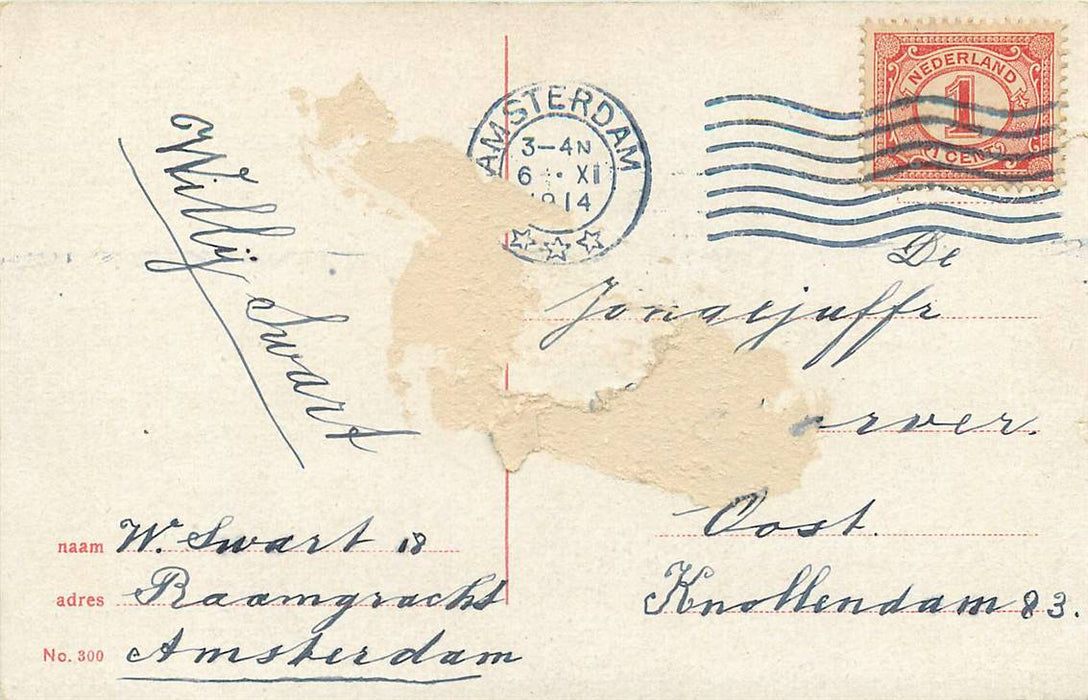 NEDERLAND
1
1 CENT
AMSTERDAM
3-4N
6 XI
1914
Willÿ Swart
De
Jongejuffr
Oost.
Knollendam 83.
naam W. Swart 18
adres Raamgracht
No. 300 Amsterdam